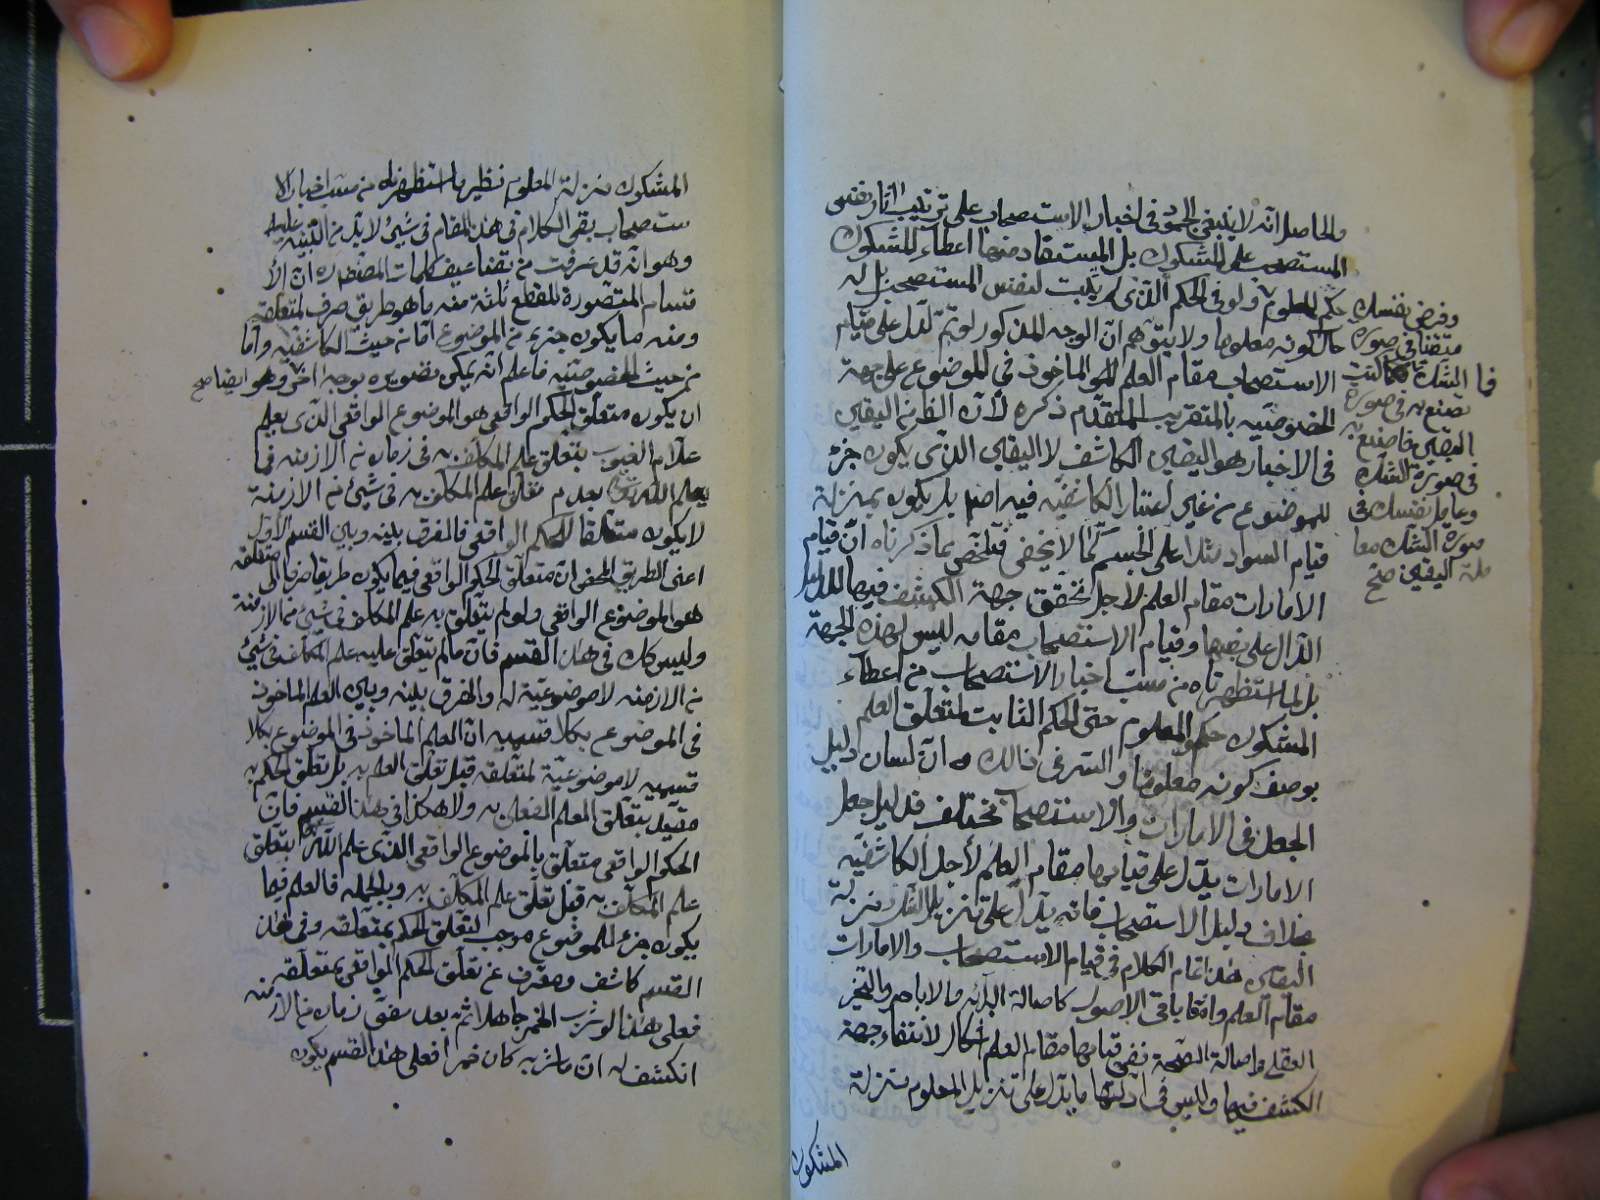 والحاصل انه لا ينبغى الجمود فى اخبار الاستصحاب على ترتيب اثار نفس
المستصحب على المشكوك بل المستفاد منها اعطاء المشكوك
حكم المعلوم ولو فى الحكم الذى لم يثبت لنفس المستصحب بل له
حال كونه معلوما ولا يتوهم ان الوجه المذكور لو تم لدل على قيام
الاستصحاب مقام العلم الماخوذ فى الموضوع على جهة
الخصوصية بالتقريب المتقدم ذكره لان الظ من اليقين
فى الاخبار هو اليقين الكاشف لا اليقين الذى يكون جزء
للموضوع من غير اعتبار الكاشفية فيه اصلا بل يكون بمنزلة
قيام السواد مثلا على الجسم كما لا يخفى فتلخص بما ذكرناه ان قيام
الامارات مقام العلم لاجل تحقق جهة الكشف فيها للدليل
الدال على نصبها وقيام الاستصحاب مقامه ليس لهذه الجهة
بل لما استظهرناه من مساق اخبار الاستصحاب من اعطاء
المشكوك حكم المعلوم حتى الحكم الثابت لمتعلق العلم
بوصف كونه معلوما والسر فى ذالك ان لسان دليل
الجعل فى الامارات والاستصحاب مختلف فدليل جعل
الامارات يدل على قيامها مقام العلم لأجل الكاشفية
بخلاف دليل الاستصحاب فانه يدل على تنزيل الشك منزلة
اليقين هذا تمام الكلام فى قيام الاستصحاب والامارات
مقام العلم واما باقى الاصول كاصالة البرائه والاباحه والتخيير
العقلى واصالة الصحة ففى قيامها مقام العلم اشكال لانتفاء جهة
الكشف فيها وليس فى ادلتها ما يدل على تنزيل المعلوم منزلة
وفرض نفسك
متيقنا فى صورة
الشك فما كنت
تصنع به فى صورة
اليقين فاصنع به
فى صورة الشك
وعامل نفسك فى
صورة الشك معا
ملة اليقين صح
المشكوك
المشكوك منزلة المعلوم نظير ما استظهرناه من مساق اخبار الا
ستصحاب بقى الكلام فى هذا المقام فى شيئ لا بد من التنبيه عليه
وهو انه قد عرفت من تضاعيف كلمات المصنف ره ان الأ
قسام المتصورة للقطع ثلثة منه ما هو طريق صرف لمتعلقه
ومنه ما يكون جزء من الموضوع اما من حيث الكاشفية واما
من حيث الخصوصية فاعلم انه يمكن تصويره بوجه اخر وهو ايضا صح
ان يكون متعلق الحكم الواقعى هو الموضوع الواقعى الذى يعلم
علام الغيوب بتعلق علم المكلف به فى زمان من الازمنه فما
يعلم الله تع بعدم تعلق علم المكلف به فى شيئ من الازمنة
لا يكون متعلقا للحكم الواقعى فالفرق بينه وبين القسم الاول
اعنى الطريق المحض ان متعلق الحكم الواقعى فيما يكون طريقا صرفا الى متعلقه
هو الموضوع الواقعى ولو لم يتعلق به علم المكلف فى شيئ من الازمنة
وليس كك فى هذا القسم فان ما لم يتعلق عليه علم المكلف فى شيئ
من الازمنه لا موضوعية له والفرق بينه وبين العلم الماخوذ
فى الموضوع بكلا قسميه ان العلم الماخوذ فى الموضوع بكلا
قسميه لا موضوعية لمتعلقه قبل تعلق العلم به بل تعلق الحكم به
مقيد بتعلق العلم الفعلى به ولا هكذا فى هذا القسم فان
الحكم الواقعى متعلق بالموضوع الواقعى الذى علم الله بتعلق
علم المكلف به قبل تعلق علم المكلف به وبالجمله فالعلم فيما
يكون جزء للموضوع موجب لتعلق الحكم بمتعلقه وفى هذا
القسم كاشف ومعرف عن تعلق الحكم الواقعى بمتعلقه
فعلى هذا لو شرب الخمر جاهلا ثم بعد مضى زمان من الازمنه
انكشف له ان ما شربه كان خمرا فعلى هذا القسم يكون